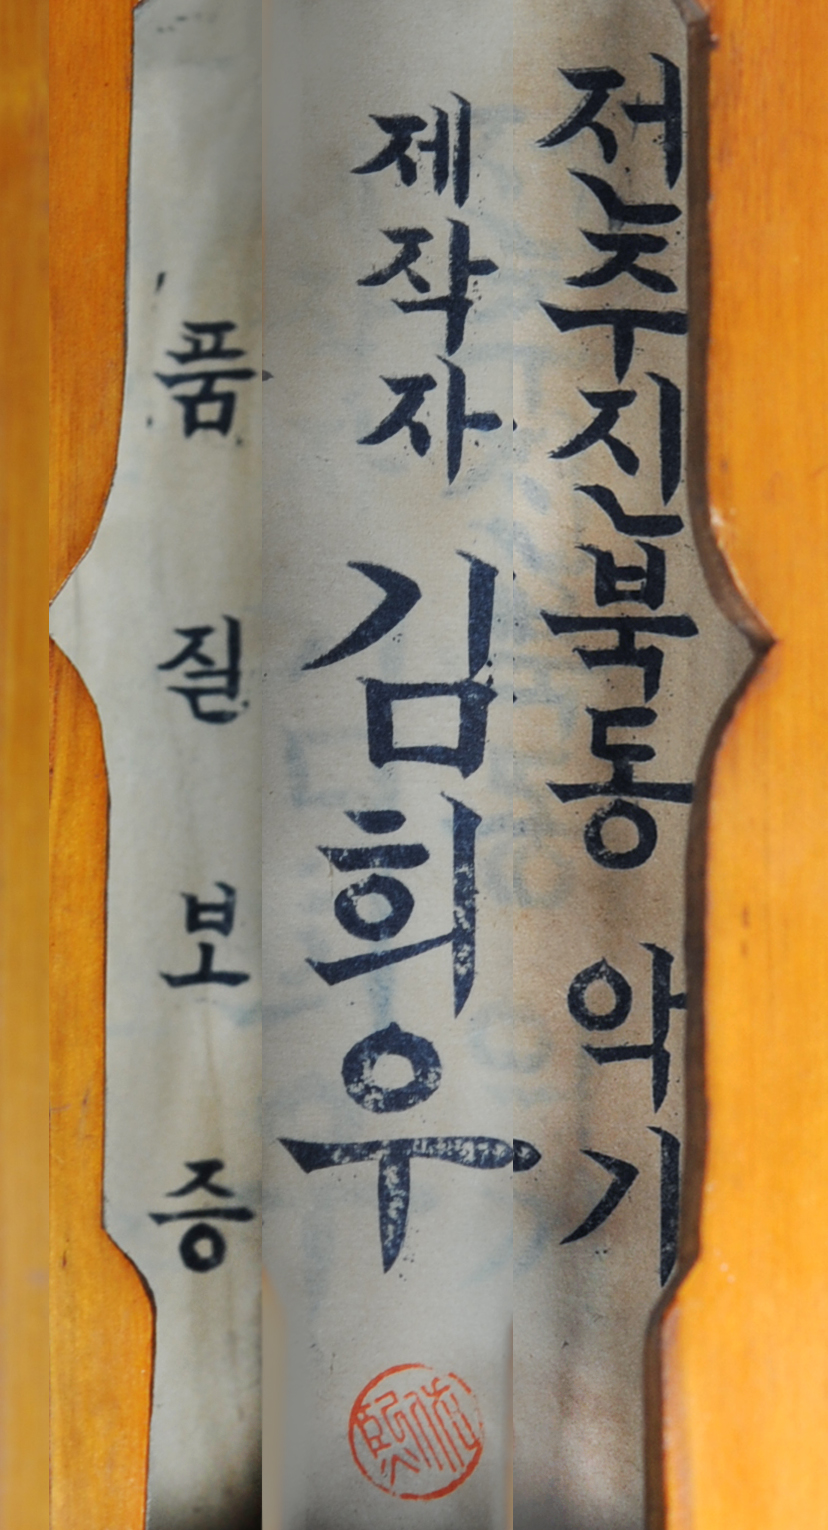 전주진북동 악기
제작자 김희우
품질보증